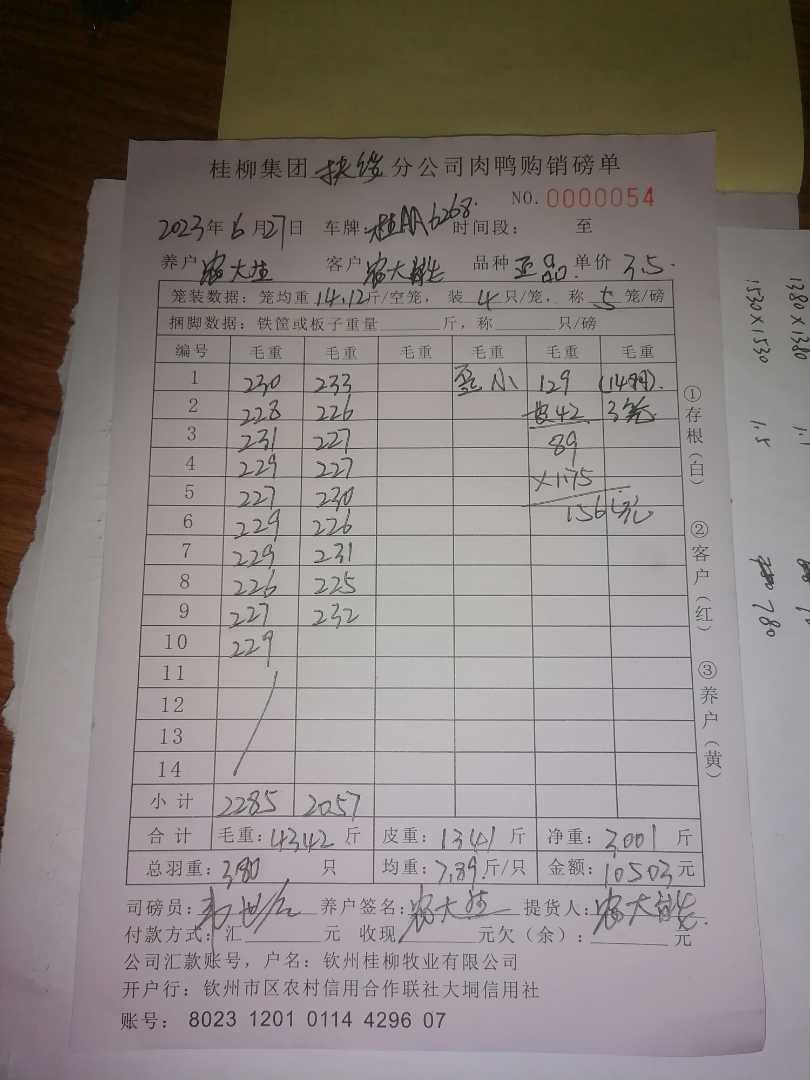 桂柳集团扶绥分公司肉鸭购销磅单
NO. 0000054
2023年6月27日 车牌: 桂AA6268 时间段: 至
养户 农大生 客户 农大 品种 亚品 单价 3.5
笼装数据: 笼均重14.12斤/空笼, 装4只/笼, 称5笼/磅
捆脚数据: 铁筐或板子重量 斤, 称 只/磅
编号 毛重 毛重 毛重 毛重 毛重 毛重
1 230 233 小 129 (14只).
2 228 226 42 3笼
3 231 227 89
4 229 227 ×1.75
5 227 230 156元
6 229 226
7 229 231
8 226 225
9 227 232
10 229
11
12
13
14
小计 2285 2057
合计 毛重: 4342 斤 皮重: 1341 斤 净重: 3001 斤
总羽重: 380 只 均重: 7.89斤/只 金额: 10503元
司磅员: 养户签名: 农大生 提货人: 农大
付款方式: 汇 元 收现 元欠(余): 元
公司汇款账号, 户名: 钦州桂柳牧业有限公司
开户行: 钦州市区农村信用合作联社大垌信用社
账号: 8023 1201 0114 4296 07
①存根(白) ②客户(红) ③养户(黄)
1380×1380 1.1
1530×1530 1.5 780